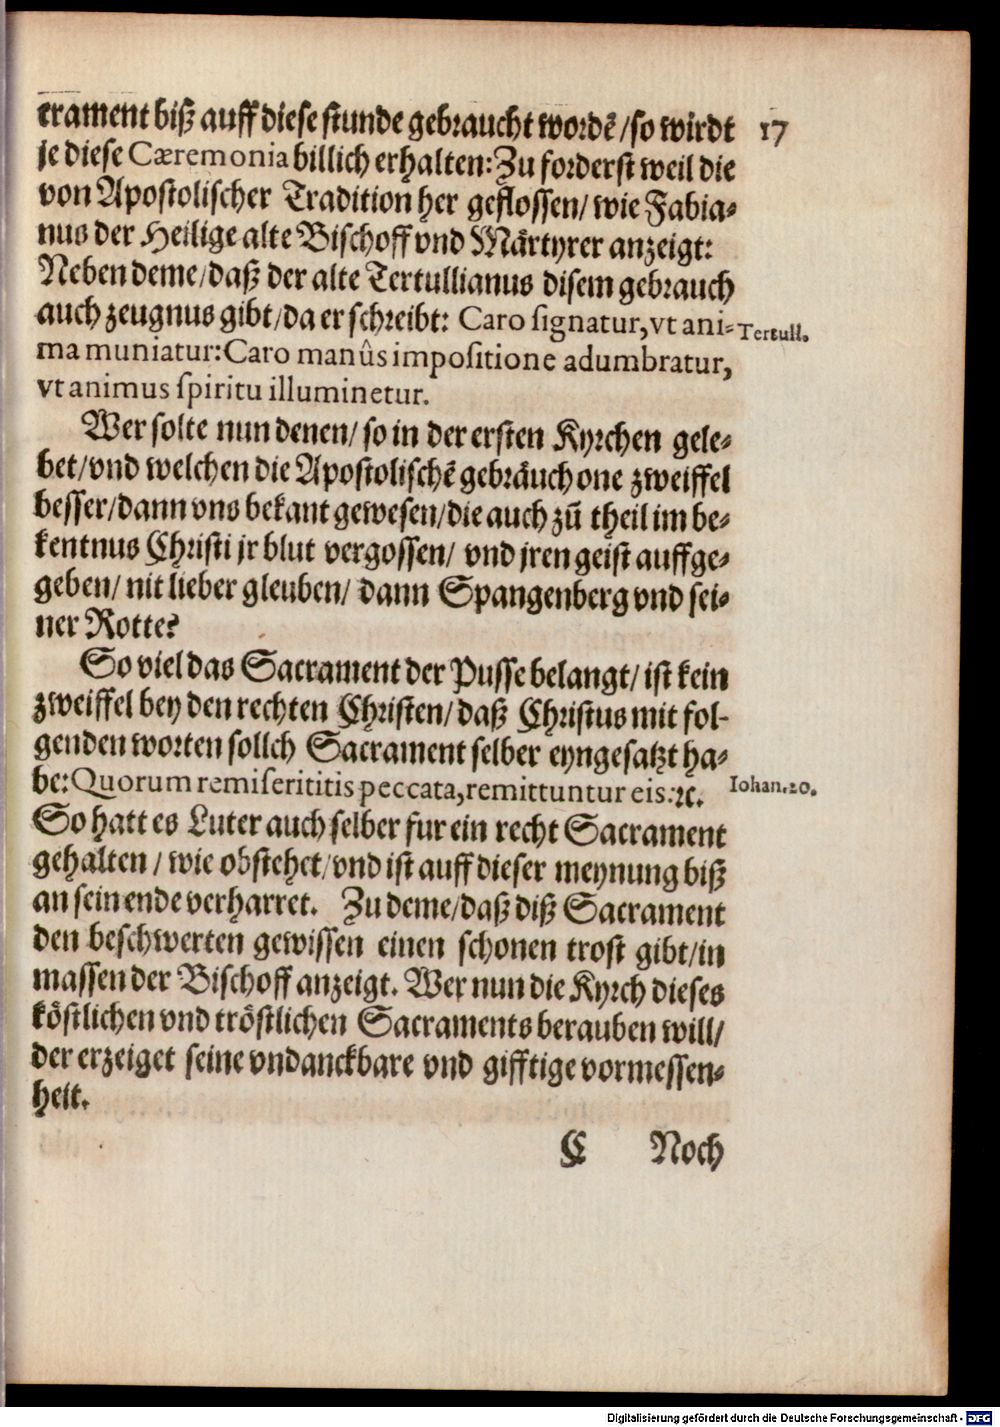 crament biß auff diese stunde gebraucht wordē/so wirdt
17
je diese Cæremonia billich erhalten: Zu forderst weil die
von Apostolischer Tradition her geflossen/ wie Fabia-
nus der Heilige alte Bischoff vnd Märtyrer anzeigt:
Neben deme/daß der alte Tertullianus disem gebrauch
auch zeugnus gibt/da er schreibt: Caro signatur,vt ani-
Tertull.
ma muniatur: Caro manûs impositione adumbratur,
vt animus spiritu illuminetur.
Wer solte nun denen/ so in der ersten Kyrchen gele-
bet/vnd welchen die Apostolischē gebräuch one zweiffel
besser/dann vns bekant gewesen/die auch zū theil im be-
kentnus Christi jr blut vergossen/ vnd jren geist auffge-
geben/ nit lieber gleuben/ dann Spangenberg vnd sei-
ner Rotte?
So viel das Sacrament der Pusse belangt/ ist kein
zweiffel bey den rechten Christen/daß Christus mit fol-
genden worten sollch Sacrament selber eyngesatzt ha-
be: Quorum remiserititis peccata,remittuntur eis.ꝛc.
Iohan.20.
So hatt es Luter auch selber fur ein recht Sacrament
gehalten / wie obstehet/vnd ist auff dieser meynung biß
an sein ende verharret. Zu deme/daß diß Sacrament
den beschwerten gewissen einen schonen trost gibt/in
massen der Bischoff anzeigt. Wer nun die Kyrch dieses
köstlichen vnd tröstlichen Sacraments berauben will/
der erzeiget seine vndanckbare vnd gifftige vormessen-
heit.
C Noch
Digitalisierung gefördert durch die Deutsche Forschungsgemeinschaft - DFG